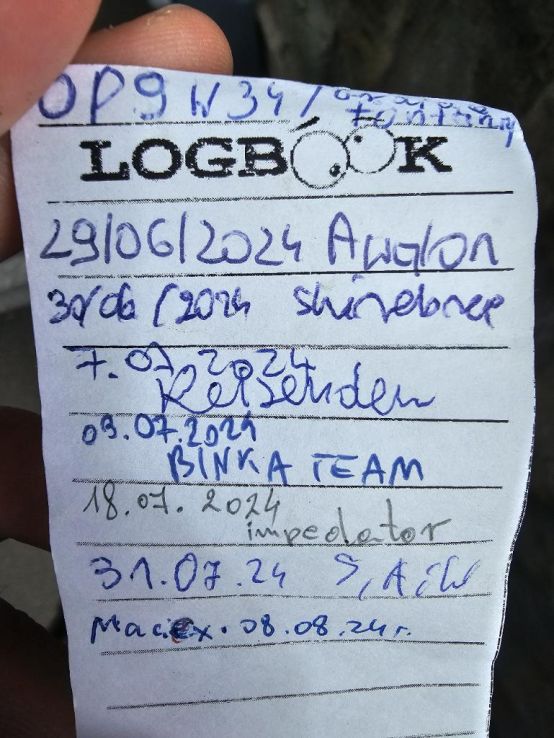 OP9W34/
LOGBOOK
29/06/2024 Awalon
30/06/2024
7.07.2024
Reisenden
09.07.2024
BINKA TEAM
18.07.2024
impedator
31.07.24 S,A,W
Maciex. 08.08.24r.